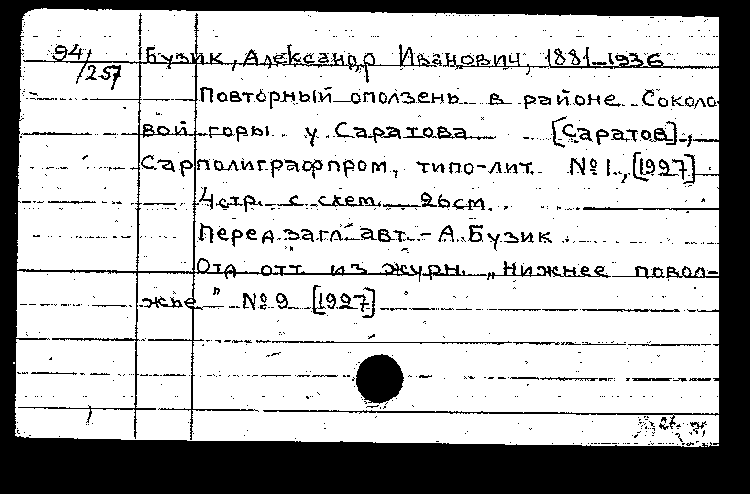 94/257
Бузик, Александр Иванович, 1881-1936
Повторный оползень в районе Соколо
вой горы у Саратова [Саратов],
Сарполиграфпром, типо-лит. №1, [1927]
4 стр. с схем. 26 см.
Перед загл. авт. - А. Бузик
Отд отт. из журн. „Нижнее повол-
жье" №9 [1927]